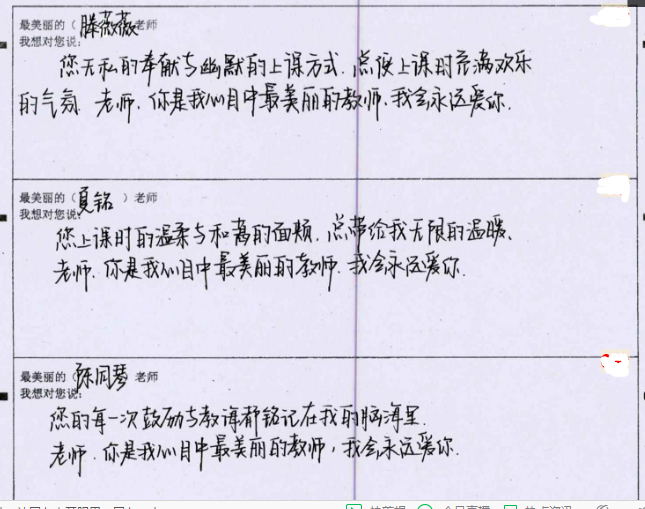 最美丽的（滕薇薇老师
我想对您说:
您无私的奉献与幽默的上课方式,总使上课时充满欢乐
的气氛.老师,你是我心目中最美丽的教师,我会永远爱你.
最美丽的（夏铭 ）老师
我想对您说:
您上课时的温柔与和蔼的面颊,总带给我无限的温暖、
老师.你是我心目中最美丽的教师.我会永远爱你.
最美丽的（陈同琴 老师
我想对您说:
您的每一次鼓励与教诲都铭记在我的脑海里.
老师.你是我心目中最美丽的教师,我会永远爱你.